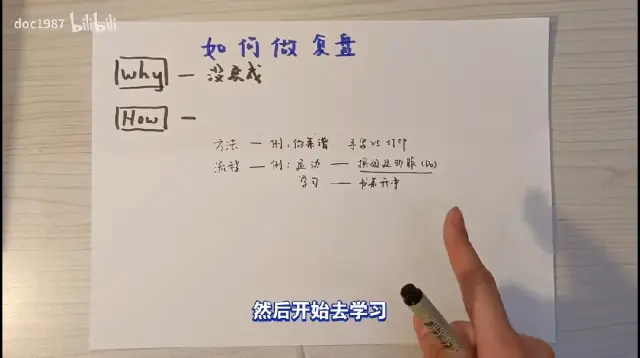 doc1987 bilibili
如何做复盘
Why — 没完成
How —
方法 — 例:做菜谱 手写 vs
流程 — 例:运动 — 换运动服 (Do)
学习 — 书
然后开始去学习